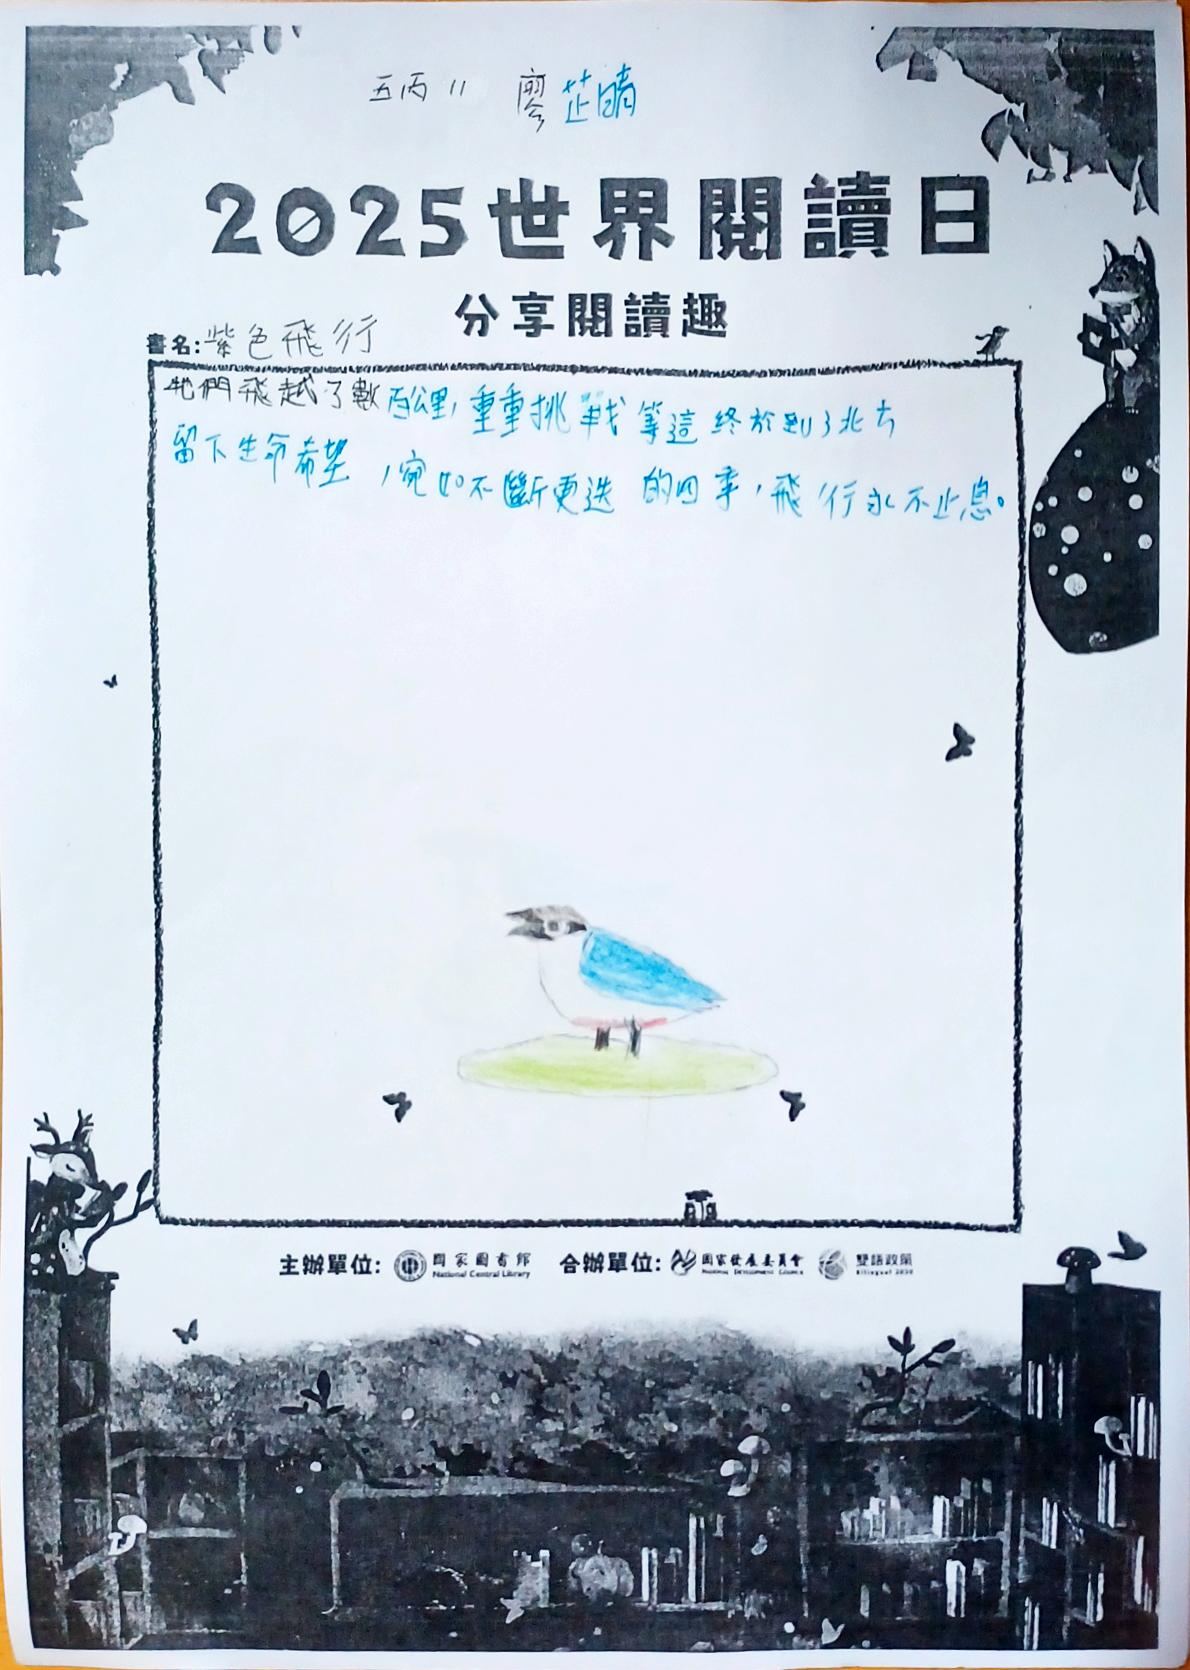 五丙 11 廖芷晴
2025世界閱讀日
分享閱讀趣
書名:紫色飛行
牠們飛越了數百公里,重重挑戰等這終於到了北方
留下生命希望,宛如不斷更迭的四季,飛行永不止息。
主辦單位: 國家圖書館 合辦單位: 國家發展委員會 雙語政策
National Central Library NATIONAL DEVELOPMENT COUNCIL Bilingual 2030